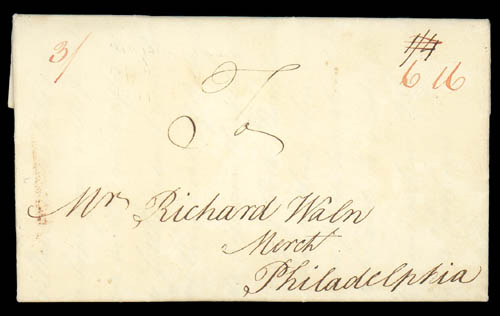 3/
1/4
6 16
To
Mr Richard Waln
Mercht
Philadelphia